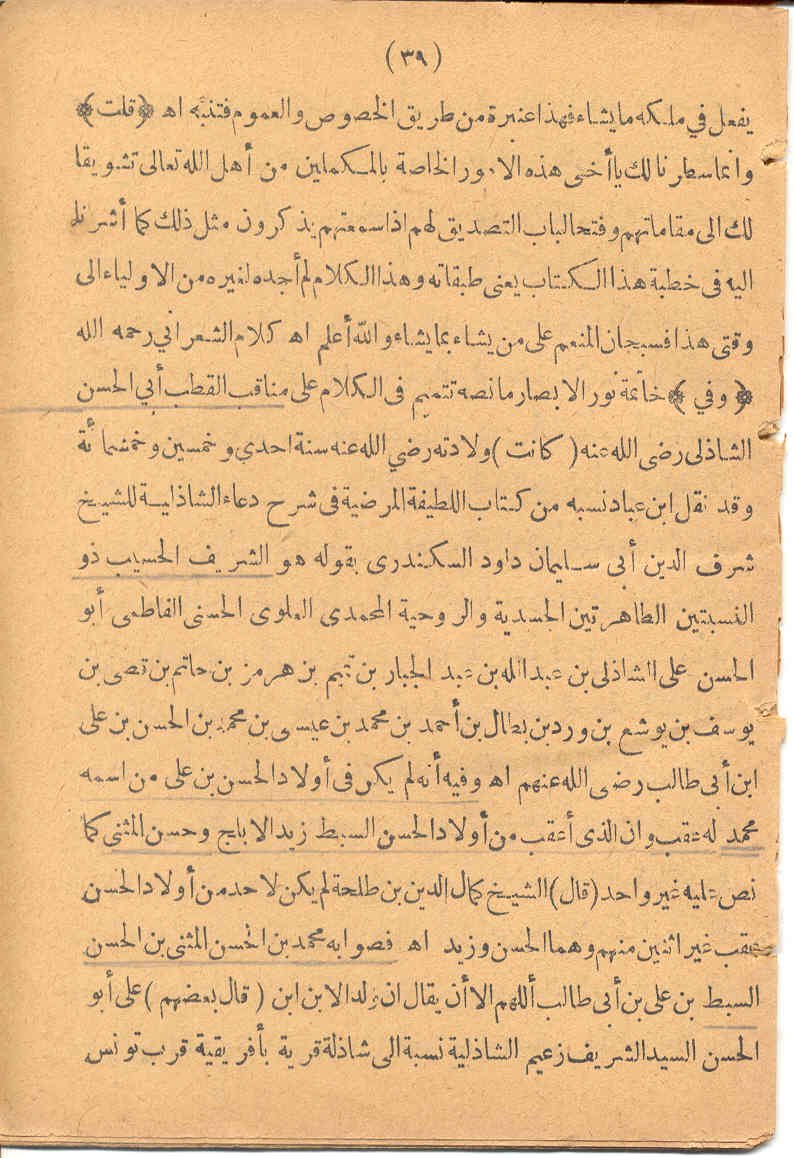 (٣٩)
يفعل في ملكه ما يشاء فهذا عنبرة من طريق الخصوص والعموم فتنبه اه ﴿قلت﴾
وانما سطرنا لك يا أخى هذه الامور الخاصة بالمكملين من أهل الله تعالى تشويقا
لك الى مقاماتهم وفتحا لباب التصديق لهم اذا سمعتهم يذكرون مثل ذلك كما أشرنا
اليه فى خطبة هذا الكتاب يعنى طبقاته وهذا الكلام لم أجده لغيره من الاولياء الى
وقتى هذا فسبحان المنعم على من يشاء بما يشاء والله أعلم اه كلام الشعراني رحمه الله
﴿وفي﴾ خاتمة نور الابصار ما نصه تتميم فى الكلام على مناقب القطب أبي الحسن
الشاذلى رضى الله عنه (كانت) ولادته رضي الله عنه سنة احدي وخمسين وخمسمائة
وقد نقل ابن عباد نسبه من كتاب اللطيفة المرضية فى شرح دعاء الشاذلية للشيخ
شرف الدين أبى سليمان داود السكندرى بقوله هو الشريف الحسيب ذو
النسبتين الطاهرتين الجسدية والروحية المحمدى العلوى الحسنى الفاطمى أبو
الحسن على الشاذلى بن عبد الله بن عبد الجبار بن تميم بن هرمز بن حاتم بن قصى بن
يوسف بن يوشع بن ورد بن بطال بن أحمد بن محمد بن عيسى بن محمد بن الحسن بن على
ابن أبى طالب رضى الله عنهم اه وفيه أنه لم يكن فى أولاد الحسن بن على من اسمه
محمد له عقب وان الذى أعقب من أولاد الحسن السبط زيد الابلج وحسن المثنى كما
نص عليه غير واحد (قال) الشيخ كمال الدين بن طلحة لم يكن لاحد من أولاد الحسن
عقب غير اثنين منهم وهما الحسن وزيد اه فصوابه محمد بن الحسن المثنى بن الحسن
السبط بن على بن أبى طالب أللهم الا أن يقال ان ولد الابن ابن (قال بعضهم) على أبو
الحسن السيد الشريف زعيم الشاذلية نسبة الى شاذلة قرية بأفريقية قرب تونس